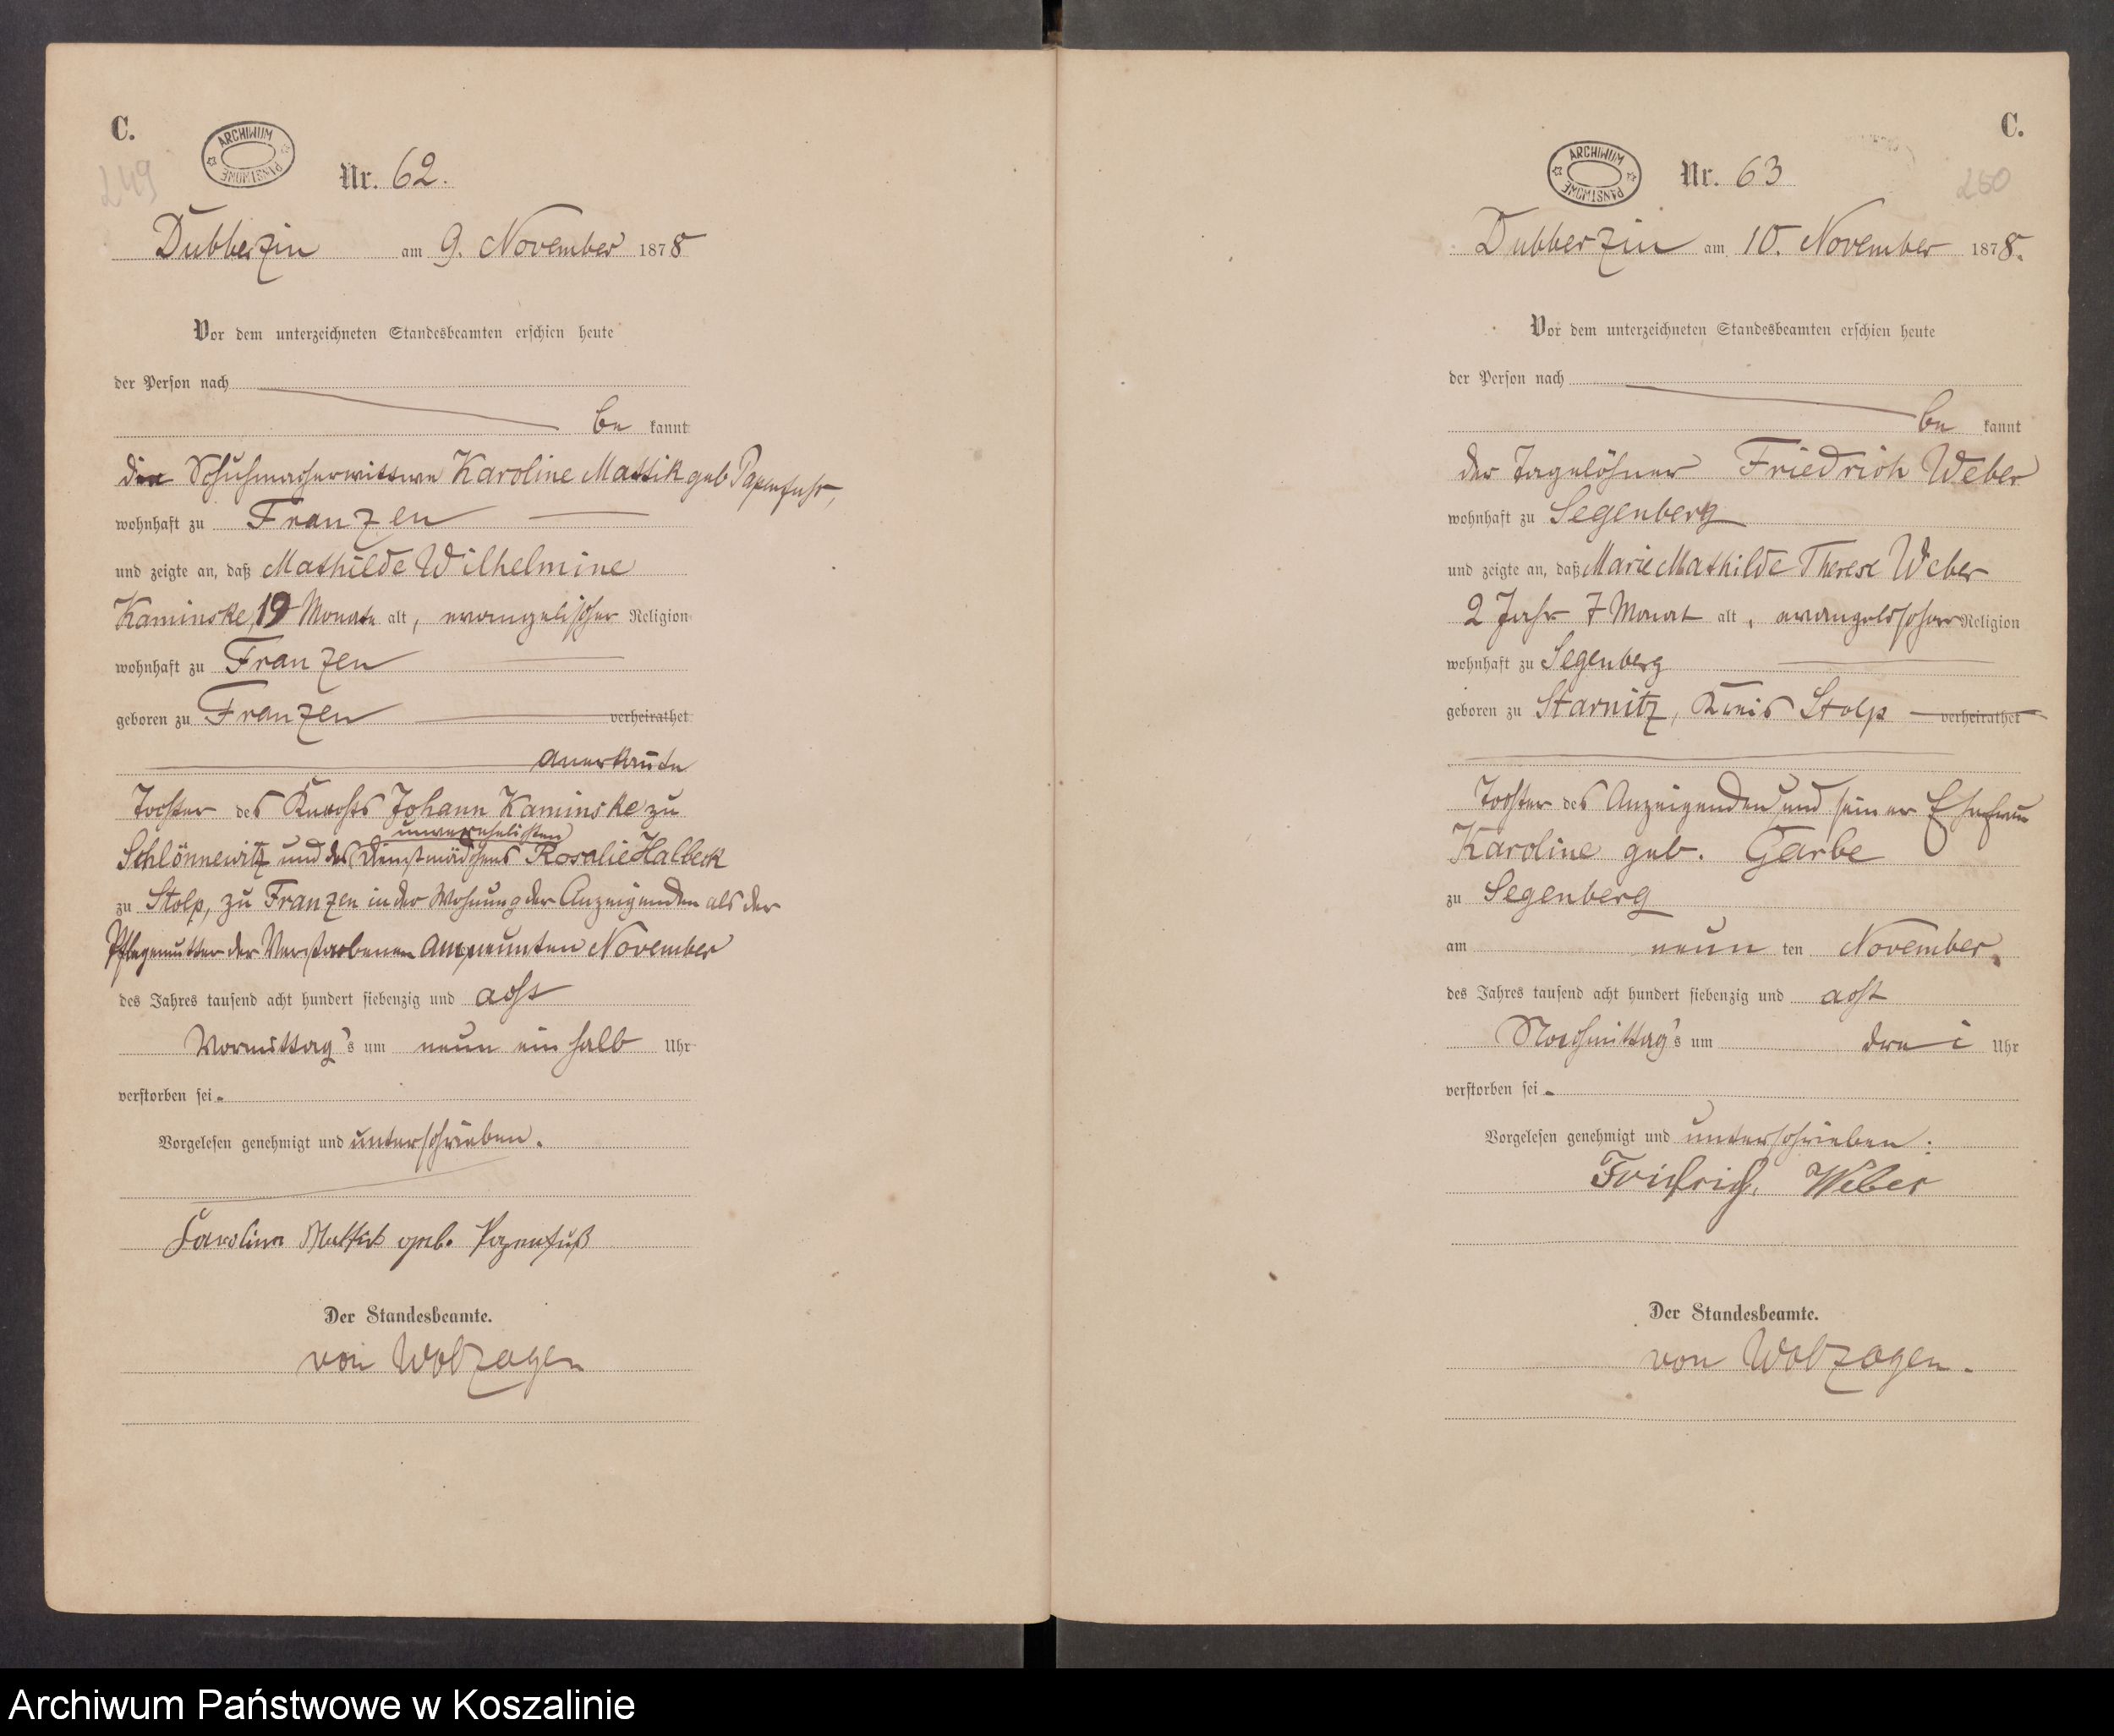 C.
ARCHIWUM PAŃSTWOWE
249
Nr. 62.
Dubberzin am 9. November 1878
Vor dem unterzeichneten Standesbeamten erschien heute
der Person nach
be kannt
die Schuhmacherwittwe Karoline Mattik geb Papenfuhs,
wohnhaft zu Franzen
und zeigte an, daß Mathilde Wilhelmine
Kaminske, 19 Monate alt, evangelischer Religion
wohnhaft zu Franzen
geboren zu Franzen verheirathet
anerkannte
Tochter des Knechts Johann Kaminske zu
unverehelichten
Schlönnewitz und des Dienstmädchens Rosalie Halbeck
zu Stolp, zu Franzen in der Wohnung der Anzeigenden als der
Pflegemutter der Verstorbenen am neunten November
des Jahres tausend acht hundert siebenzig und acht
Vormittag's um neun ein halb Uhr
verstorben sei.
Vorgelesen genehmigt und unterschrieben.
Carolina Mattik geb. Papenfuß
Der Standesbeamte.
von Wolzogen
C.
ARCHIWUM PAŃSTWOWE
250
Nr. 63
Dubberzin am 10. November 1878.
Vor dem unterzeichneten Standesbeamten erschien heute
der Person nach
be kannt
der Tagelöhner Friedrich Weber
wohnhaft zu Segenberg
und zeigte an, daß Marie Mathilde Therese Weber
2 Jahr 7 Monat alt, evangelischer Religion
wohnhaft zu Segenberg
geboren zu Starnitz, Kreis Stolp verheirathet
Tochter des Anzeigenden und seiner Ehefrau
Karoline geb. Garbe
zu Segenberg
am neun ten November.
des Jahres tausend acht hundert siebenzig und acht
Nachmittag's um drei Uhr
verstorben sei.
Vorgelesen genehmigt und unterschrieben.
Friedrich Weber
Der Standesbeamte.
von Wolzogen.
Archiwum Państwowe w Koszalinie